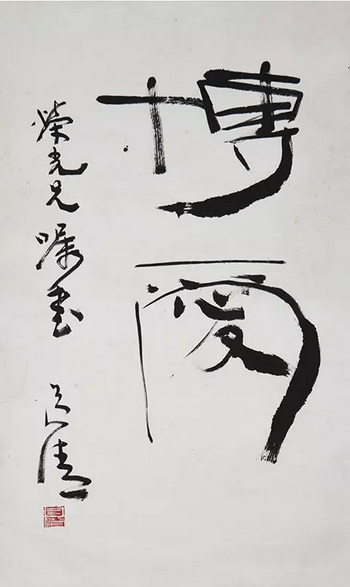 博愛
榮光兄嘱書